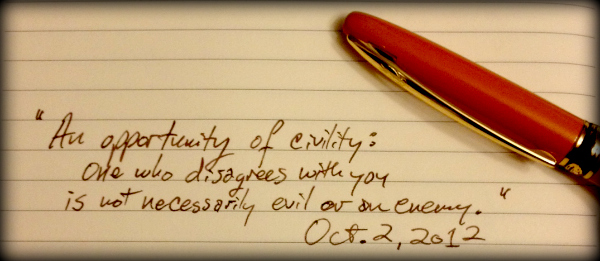 "An opportunity of civility:
One who disagrees with you
is not necessarily evil or an enemy."
Oct. 2, 2012